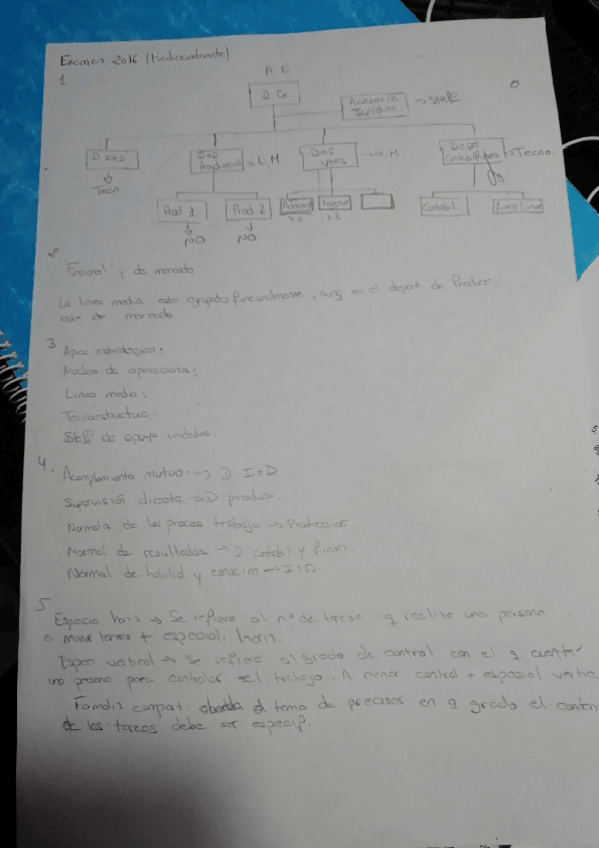 Examen 2016 (Medioambiente)
1
A E
D G
Asesoría Jurídica → Staff
D I+D
Tecn
Dep Producción → L.M
Dep Vtas → L.M
Depar Contabil → Tecno.
Prod 1
NO
Prod 2
NO
x3
x3
Contabil
Financ
Funcional y de mercado
La línea media esta agrupada funcionalmente, aunq en el depart de Produc.
este de mercado
3
Apice estrategico:
Nucleo de operaciones:
Linea media:
Tecnoestructura:
Staff de apoyo
4.
Acoplamiento mutuo → D I+D
Supervisión directa → D produc.
Normaliz de los proces trabajo → Produccion
Normal de resultados → D contabil y finan.
Normal de habilid y conocim → I+D
5
Especia horiz → Se refiere al nº de tareas q realiza una persona
a menor tareas + especiali. horiz.
Espec vertical → Se refiere al grado de control con el q cuenta
una persona para controlar el trabajo. A menor control + especial vertic.
compat: el tema de precisar en q grado el conten
de las tareas debe ser especif.